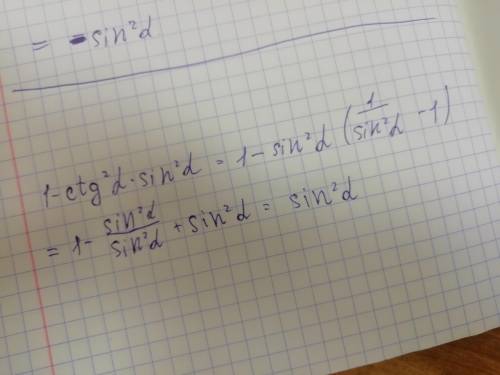 = - sin²α
1-ctg²α·sin²α = 1 - sin²α (1/sin²α - 1)
= 1 - sin²α/sin²α + sin²α = sin²α